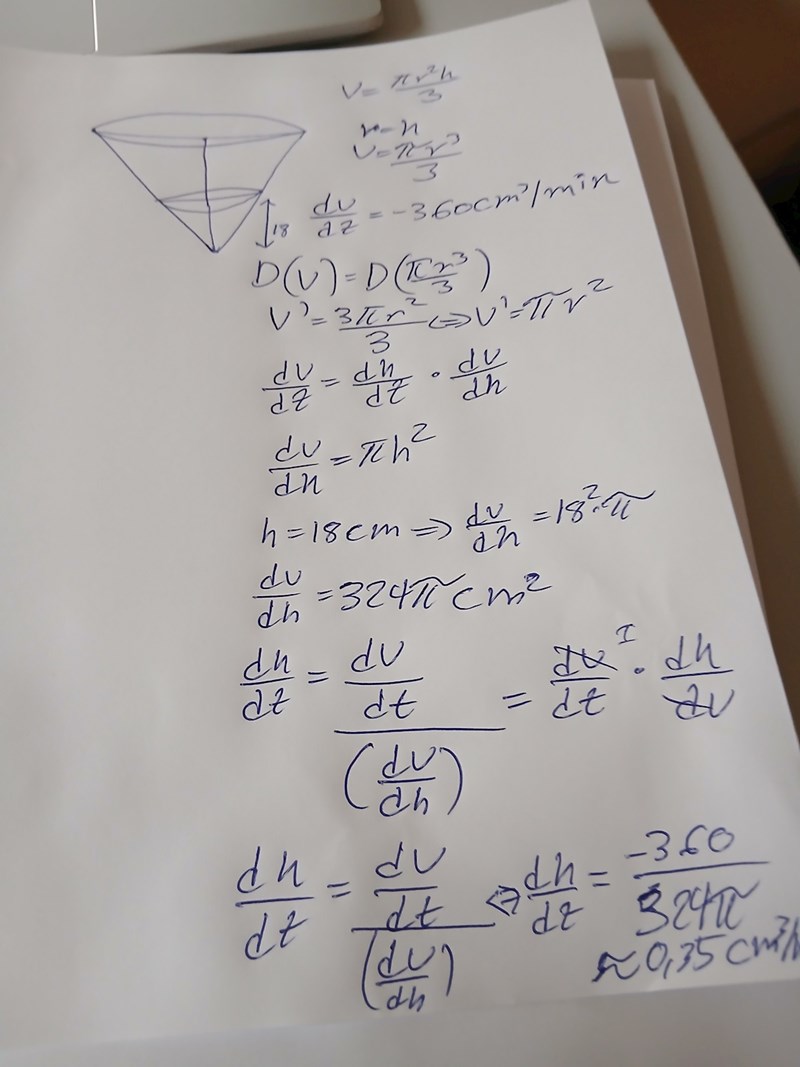 V = πr²h/3
r=h
V = πr³/3
18
dv/dt = -360cm³/min
D(V) = D(πr³/3)
V' = 3πr²/3 ⇔ V' = πr²
dv/dt = dh/dt · dv/dh
dv/dh = πh²
h = 18cm ⇒ dv/dh = 18²·π
dv/dh = 324π cm²
dh/dt = (dv/dt)/(dv/dh) = dv/dt · dh/dv
dh/dt = (dv/dt)/(dv/dh) ⇔ dh/dt = -360/324π
≈0,35 cm³/